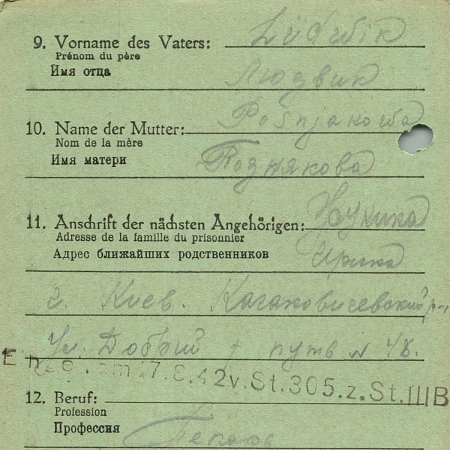 9. Vorname des Vaters: Ludwik
Prénom du père
Имя отца Людвик
Pošnjakowa
10. Name der Mutter:
Nom de la mère
Имя матери Поднякова
11. Anschrift der nächsten Angehörigen:
Adresse de la famille du prisonnier
Адрес ближайших родственников Ирина
г. Киев. Кагановичевский р-н
Ул. Добрый путь N 48.
7.8.42 v. St. 305. z. St. III B
12. Beruf:
Profession
Профессия Пекарь